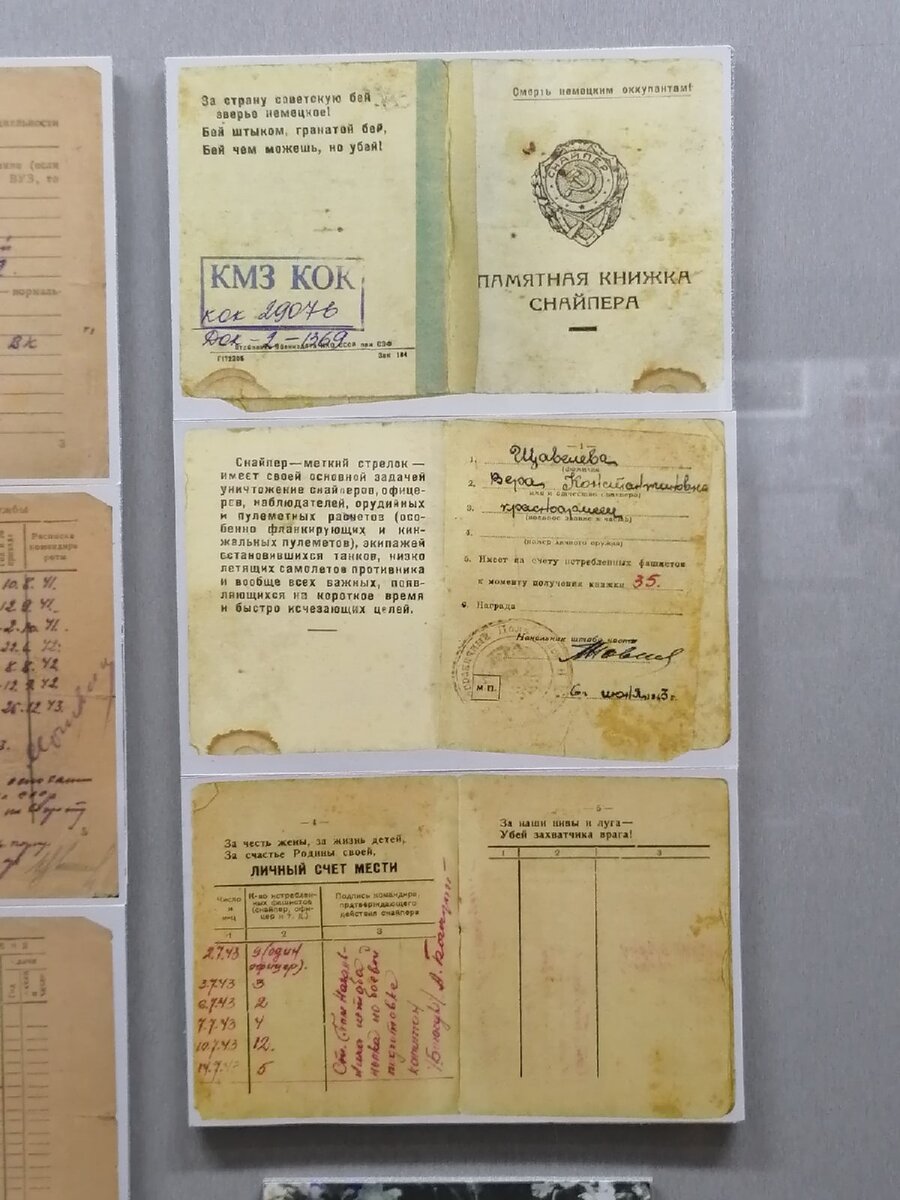 За страну советскую бей
зверье немецкое!
Бей штыком, гранатой бей,
Бей чем можешь, но убей!
КМЗ КОК
кок 29076
Док-2-1369
Г172205
Зак 184
Смерть немецким оккупантам!
СНАЙПЕР
ПАМЯТНАЯ КНИЖКА
СНАЙПЕРА
Снайпер—меткий стрелок—
имеет своей основной задачей
уничтожение снайперов, офице-
ров, наблюдателей, орудийных
и пулеметных расчетов (осо-
бенно фланкирующих и кин-
жальных пулеметов), экипажей
остановившихся танков, низко
летящих самолетов противника
и вообще всех важных, появ-
ляющихся на короткое время
и быстро исчезающих целей.
—1—
1. Щавелева
(фамилия)
2. Вера Константиновна
имя и отчество снайпера)
3. красноармеец
4.
(номер личного оружия)
5. Имеет на счету истребленных фашистов
к моменту получения книжки 35.
6. Награда
Начальник штаба части
М П.
6. июня 43 г.
—4—
За честь жены, за жизнь детей,
За счастье Родины своей,
ЛИЧНЫЙ СЧЕТ МЕСТИ
Число и м-ц
К-во истреблен-
ных фашистов
(снайпер, офи-
цер и т. д.)
Подпись командира,
подтверждающего
действия снайпера
1 2 3
2.7.43 9 (один
офицер).
3.7.43 3
6.7.43 2
7.7.43 4
10.7.43 12.
14.7.43 5
Ст. Пом Началь-
ника штаба
полка по боевой
подготовке
капитан
—5—
За наши нивы и луга—
Убей захватчика врага!
1 2 3
ВУЗ, то
— нормаль-
вк
3
службы
Расписка
командира
роты
10.8.41.
12.9.41.
2.10.41.
8.8.42
12.9.42
25.12.43.
5